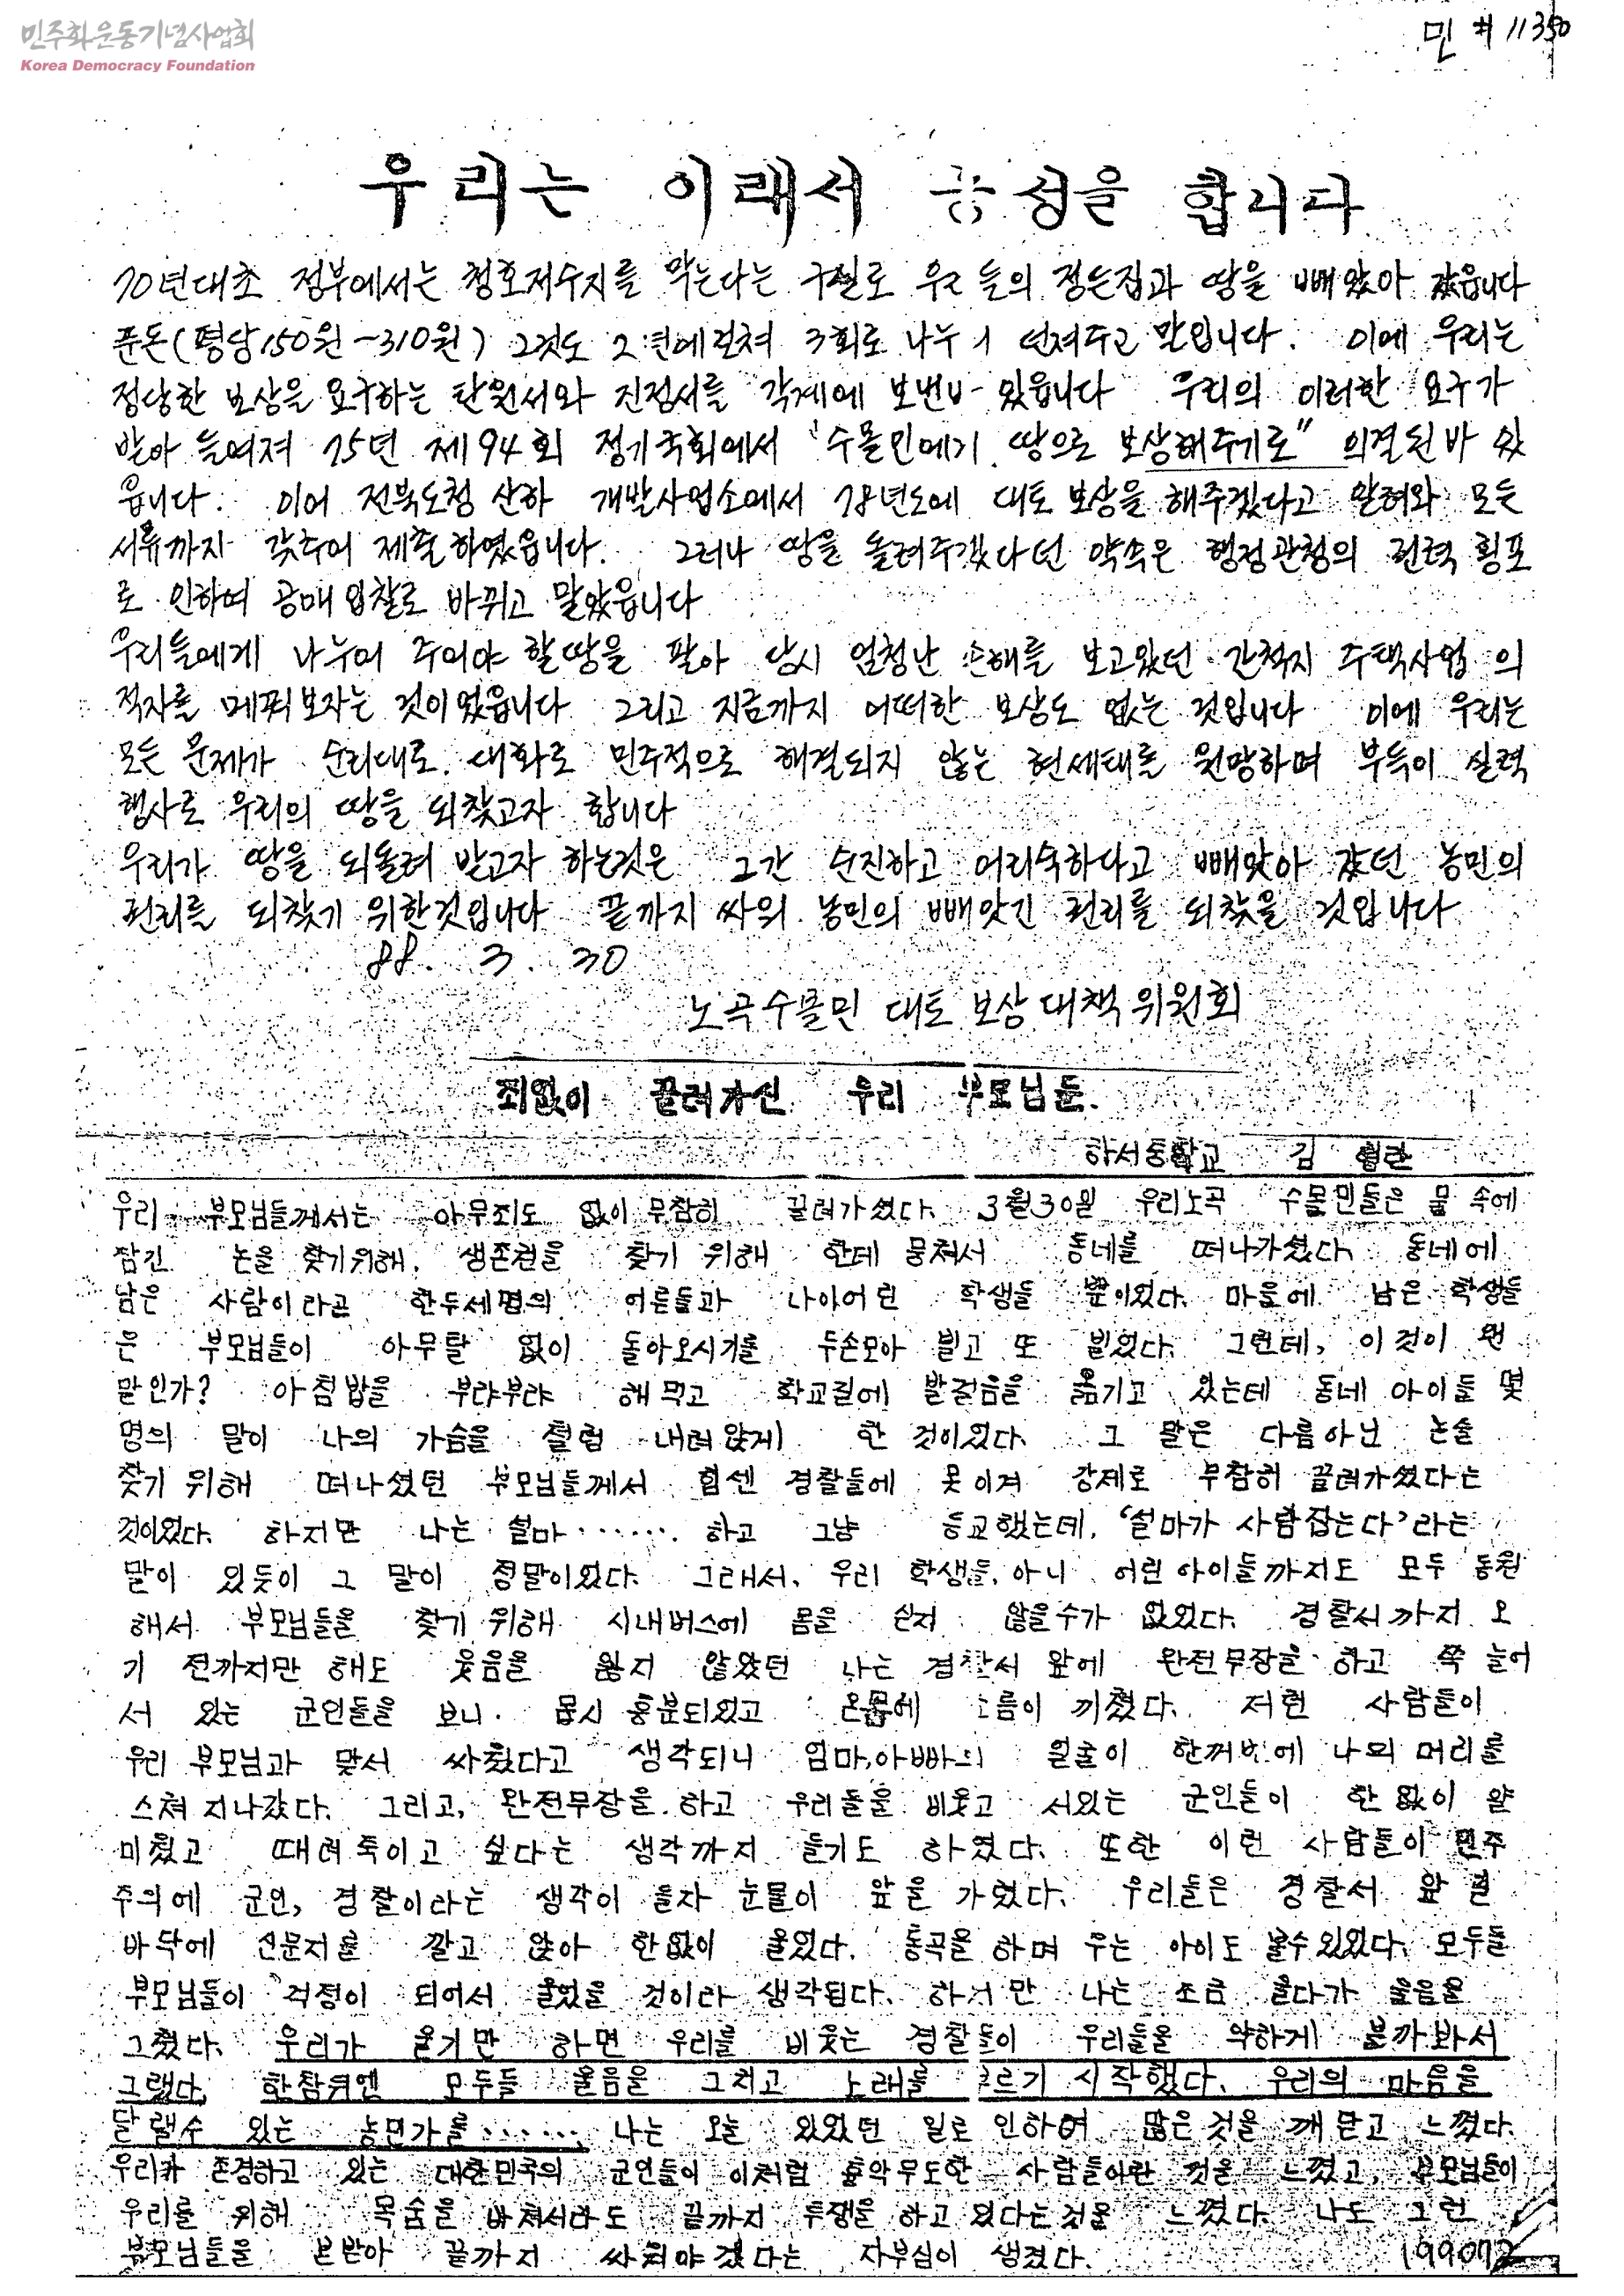 민주화운동기념사업회
Korea Democracy Foundation
민 # 11350
우리는 이래서 농성을 합니다
70년대초 정부에서는 청호저수지를 막는다는 구실로 우리들의 정든집과 땅을 빼았아 갔읍니다
푼돈(평당150원~310원) 그것도 2년에걸쳐 3회로 나누어 던져주고 말입니다. 이에 우리는
정당한 보상을 요구하는 탄원서와 진정서를 각계에 보낸바 있읍니다 우리의 이러한 요구가
받아 들여져 75년 제94회 정기국회에서 "수몰민에게 땅으로 보상해주기로" 의결된바 있
읍니다. 이어 전북도청 산하 개발사업소에서 78년도에 대토 보상을 해주겠다고 알려와 모든
서류까지 갖추어 제출하였읍니다. 그러나 땅을 돌려주겠다던 약속은 행정관청의 권력 횡포
로 인하여 공매 입찰로 바뀌고 말았읍니다
우리들에게 나누어 주어야 할땅을 팔아 당시 엄청난 손해를 보고있던 간척지 주택사업의
적자를 메꿔보자는 것이었읍니다 그리고 지금까지 어떠한 보상도 없는 것입니다 이에 우리는
모든 문제가 순리대로 대화로 민주적으로 해결되지 않는 현세태를 원망하며 부득이 실력
행사로 우리의 땅을 되찾고자 합니다
우리가 땅을 되돌려 받고자 하는것은 그간 순진하고 어리숙하다고 빼앗아 갔던 농민의
권리를 되찾기 위한것입니다 끝까지 싸워 농민의 빼앗긴 권리를 되찾을 것입니다
88. 3. 30
노곡수몰민 대토 보상대책위원회
죄없이 끌려가신 우리 부모님들.
하서중학교 김
우리 부모님들께서는 아무죄도 없이 무참히 끌려가셨다. 3월30일 우리노곡 수몰민들은 물 속에
잠긴 논을 찾기위해, 생존권을 찾기 위해 한데 뭉쳐서 동네를 떠나가셨다. 동네에
남은 사람이라곤 한두세명의 어른들과 나이어린 학생들 뿐이었다. 마을에 남은 학생들
은 부모님들이 아무탈 없이 돌아오시기를 두손모아 빌고 또 빌었다. 그런데, 이것이 웬
말인가? 아침밥을 부랴부랴 해먹고 학교길에 발걸음을 옮기고 있는데 동네 아이들 몇
명의 말이 나의 가슴을 철렁 내려앉게 한 것이었다. 그 말은 다름아닌 논을
찾기 위해 떠나셨던 부모님들께서 힘센 경찰들에 못이겨 강제로 무참히 끌려가셨다는
것이었다. 하지만 나는 설마....... 하고 그냥 등교했는데, '설마가 사람잡는다'라는
말이 있듯이 그 말이 정말이었다. 그래서, 우리 학생들, 아니 어린아이들까지도 모두 동원
해서 부모님들을 찾기 위해 시내버스에 몸을 싣지 않을수가 없었다. 경찰서까지 오
기 전까지만 해도 웃음을 잃지 않았던 나는 경찰서 앞에 완전무장을 하고 쭉 늘어
서 있는 군인들을 보니 몹시 흥분되었고 온몸에 소름이 끼쳤다. 저런 사람들이
우리 부모님과 맞서 싸웠다고 생각되니 엄마,아빠의 얼굴이 한꺼번에 나의 머리를
스쳐 지나갔다. 그리고, 완전무장을 하고 우리들을 비웃고 서있는 군인들이 한없이 얄
미웠고 때려죽이고 싶다는 생각까지 들기도 하였다. 또한 이런 사람들이 민주
주의에 군인, 경찰이라는 생각이 들자 눈물이 앞을 가렸다. 우리들은 경찰서 앞 길
바닥에 신문지를 깔고 앉아 한없이 울었다. 통곡을 하며 우는 아이도 볼수있었다. 모두들
부모님들이 걱정이 되어서 울었을 것이라 생각된다. 하지만 나는 조금 울다가 울음을
그쳤다. 우리가 울기만 하면 우리를 비웃는 경찰들이 우리들을 약하게 볼까봐서
그랬다. 한참뒤엔 모두들 울음을 그치고 노래를 부르기 시작했다. 우리의 마음을
달랠수 있는 농민가를...... 나는 오늘 있었던 일로 인하여 많은 것을 깨닫고 느꼈다.
우리가 존경하고 있는 대한민국의 군인들이 이처럼 흉악무도한 사람들이란 것을 느꼈고, 부모님들이
우리를 위해 목숨을 바쳐서라도 끝까지 투쟁을 하고 있다는것을 느꼈다. 나도 그런
부모님들을 본받아 끝까지 싸워야겠다는 자부심이 생겼다.
199072